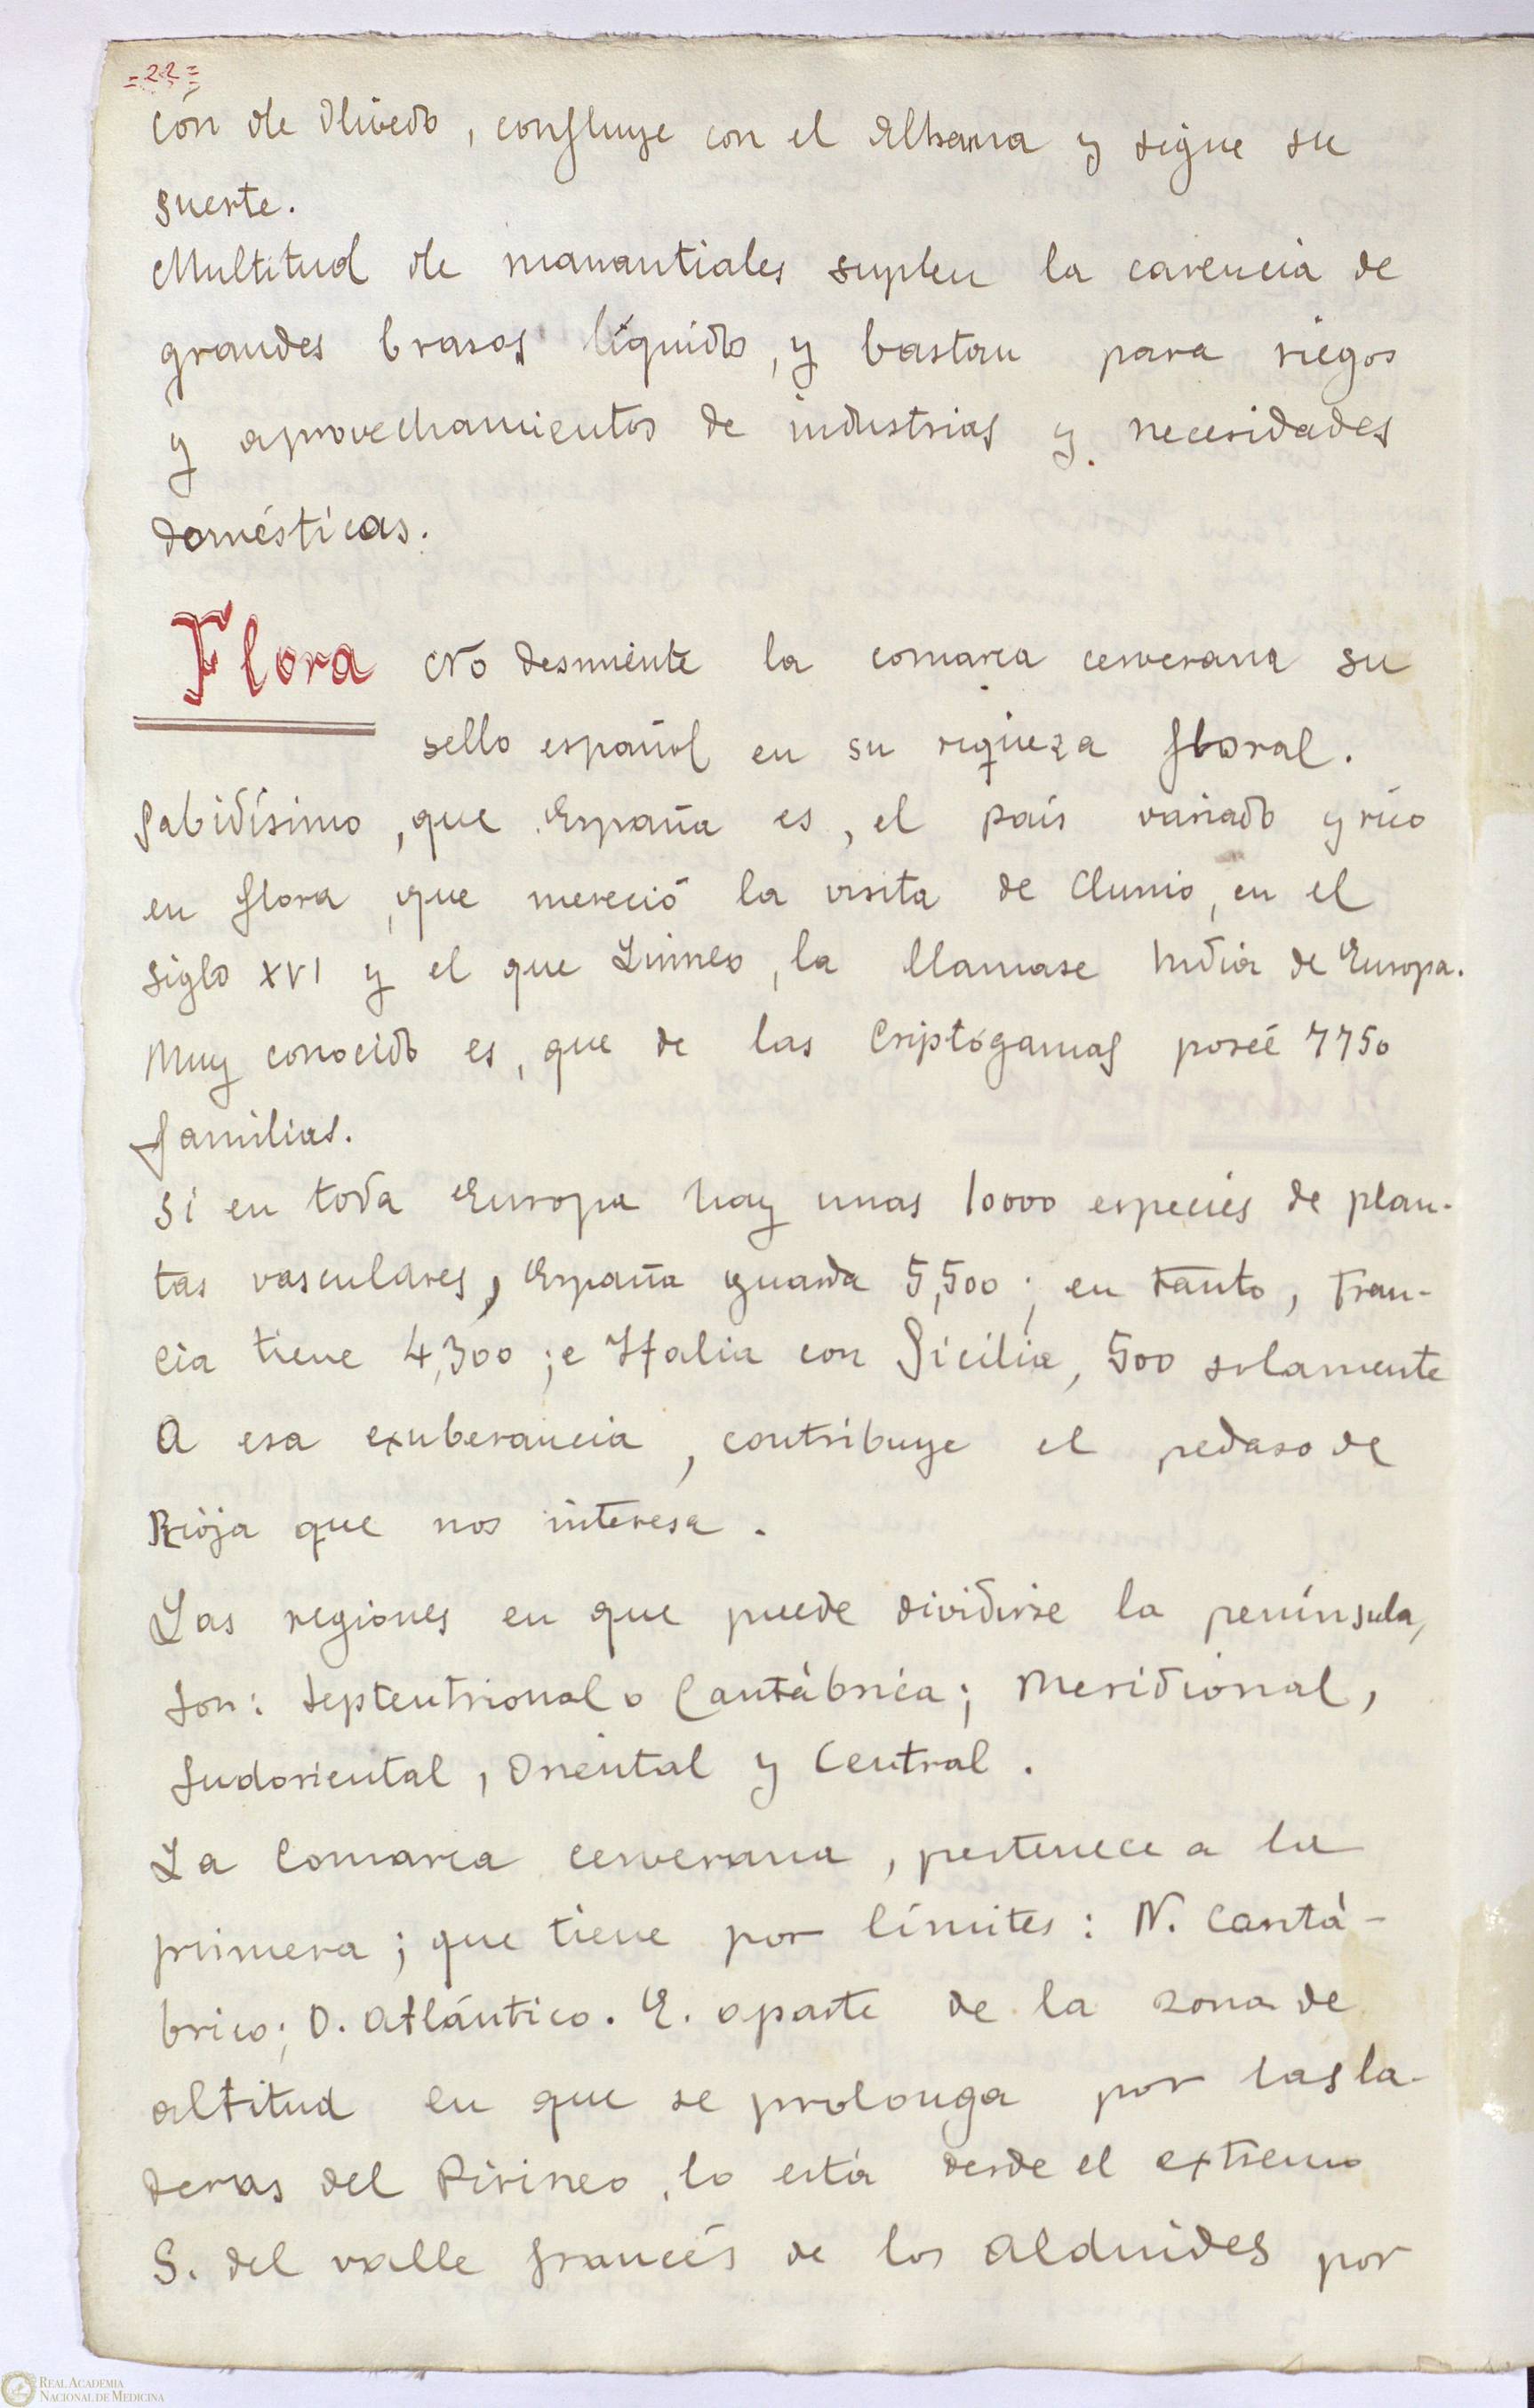 =22=
cón de Olivedo, confluye con el Alhama y sigue su
suerte.
Multitud de manantiales suplen la carencia de
grandes brasos líquido, y bastan para riegos
y aprovechamientos de industrias y necesidades
domésticas.
Flora No desmiente la comarca cerverana su
sello español en su riqueza floral.
Sabidísimo, que España es, el país variado y rico
en flora, que mereció la visita de Clunio, en el
siglo XVI y el que Linneo, la llamase India de Europa.
Muy conocido es, que de las Criptógamas poseé 7750
familias.
Si en toda Europa hay unas 10000 especies de plan-
tas vasculares, España guarda 5,500; en tanto, Fran-
cia tiene 4,300; e Italia con Sicilia, 500 solamente
A esa exuberancia, contribuye el pedaso de
Rioja que nos interesa.
Las regiones en que puede dividirse la península,
son: Septentrional o Cantábrica; Meridional,
Sudoriental, Oriental y Central.
La Comarca cerverana, pertenece a la
primera; que tiene por límites: N. Cantá-
brico; O. Atlántico. E. aparte de la zona de
altitud en que se prolonga por las la-
deras del Pirineo, lo está desde el extremo
S. del valle francés de los Alduides por
REAL ACADEMIA
NACIONAL DE MEDICINA